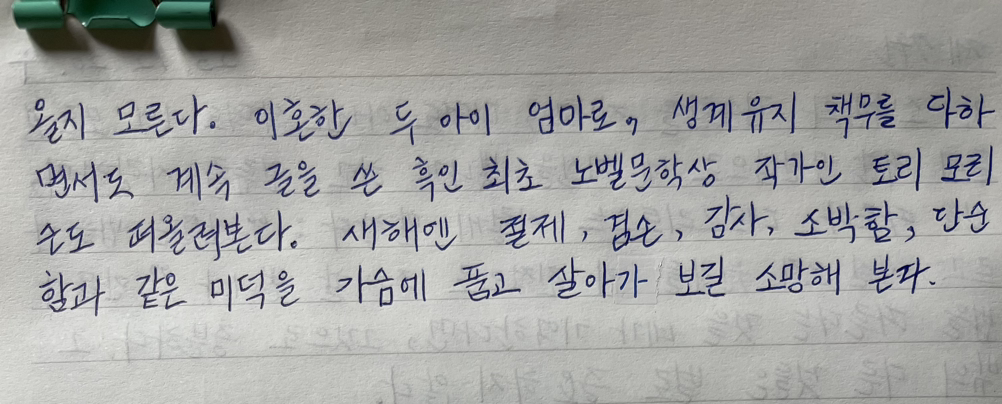 올지 모른다. 이혼한 두 아이 엄마로, 생계유지 책무를 다하
면서도 계속 글을 쓴 흑인 최초 노벨문학상 작가인 토리 모리
슨도 떠올려본다. 새해엔 절제, 겸손, 감사, 소박함, 단순
함과 같은 미덕을 가슴에 품고 살아가 보길 소망해 본다.